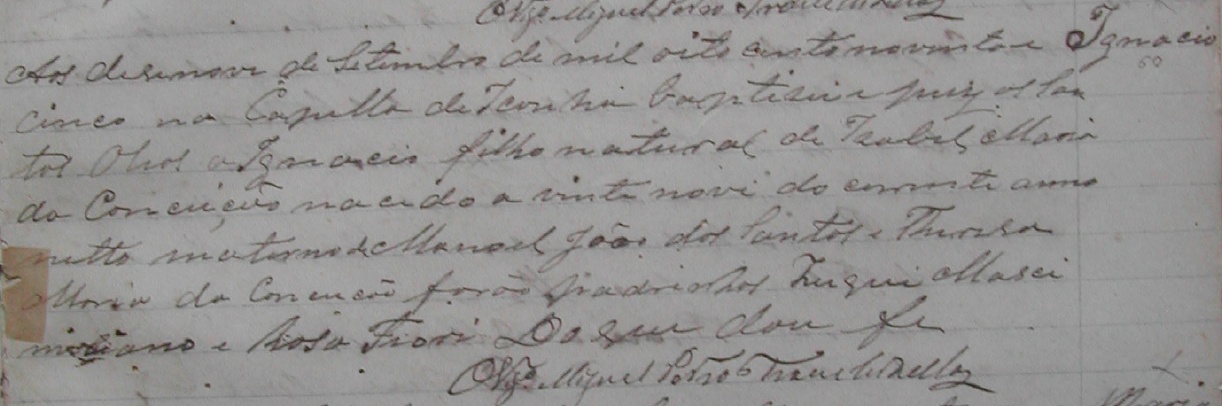 O Vigº Miguel Pedro
Ignacio
60
Aos desenove de Setembro de mil oito cento noventa e
cinco na Capella de Iconha baptisei e puz os San
tos Olios a Ignacio filho natural de Isabel Maria
da Conceição nacido a vinte nove do corrente anno
netto materno de Manoel João dos Santos e Thereza
Maria da Conceicão forão padrinhos Masci
miano e Rosa Fiori Do que dou fe
O Vigº Miguel Pedro
Maria